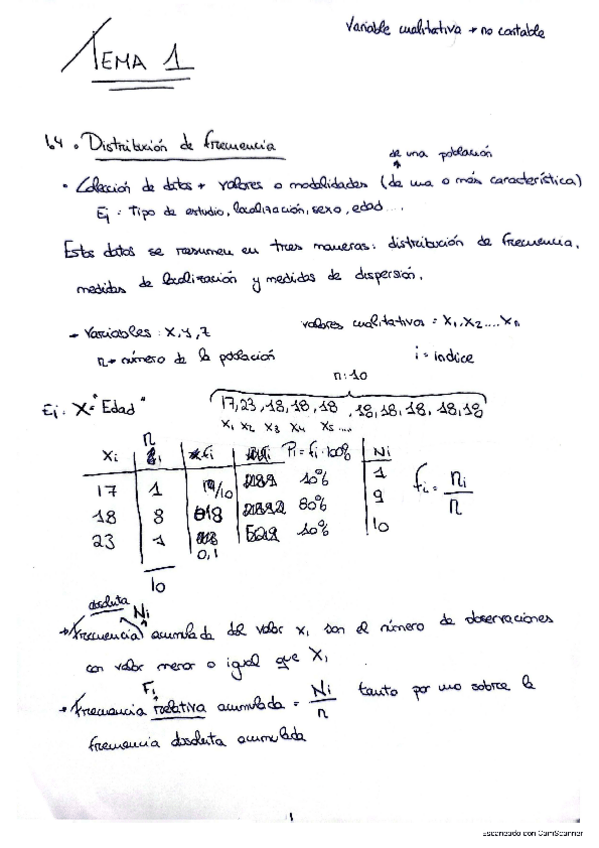 Variable cualitativa → no contable
TEMA 1
1.4 . Distribución de frecuencia
de una población
• Colección de datos → valores o modalidades (de una o más característica)
Ej : Tipo de estudio, localización, sexo, edad ....
Estos datos se resumen en tres maneras: distribución de frecuencia,
medidas de localización y medidas de dispersión.
→ Variables : X, Y, Z valores cualitativos = X1, X2 .... Xn
n → número de la población i = indice
n: 10
Ej : X = "Edad" 17, 23, 18, 18, 18, 18, 18, 18, 18, 18
X1 X2 X3 X4 X5 ....
Xi n i fi Pi = fi · 100% Ni
17 1 /10 10% 1
18 8 0'8 80% 9
23 1 0,1 10% 10
10
fi = ni / n
absoluta Ni
→ Frecuencia acumulada del valor Xi son el número de observaciones
con valor menor o igual que Xi
Fi
→ Frecuencia relativa acumulada = Ni / n tanto por uno sobre la
frecuencia absoluta acumulada
1
Escaneado con CamScanner